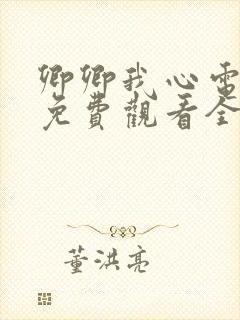 卿卿我心電
免費觀看全
董洪亮